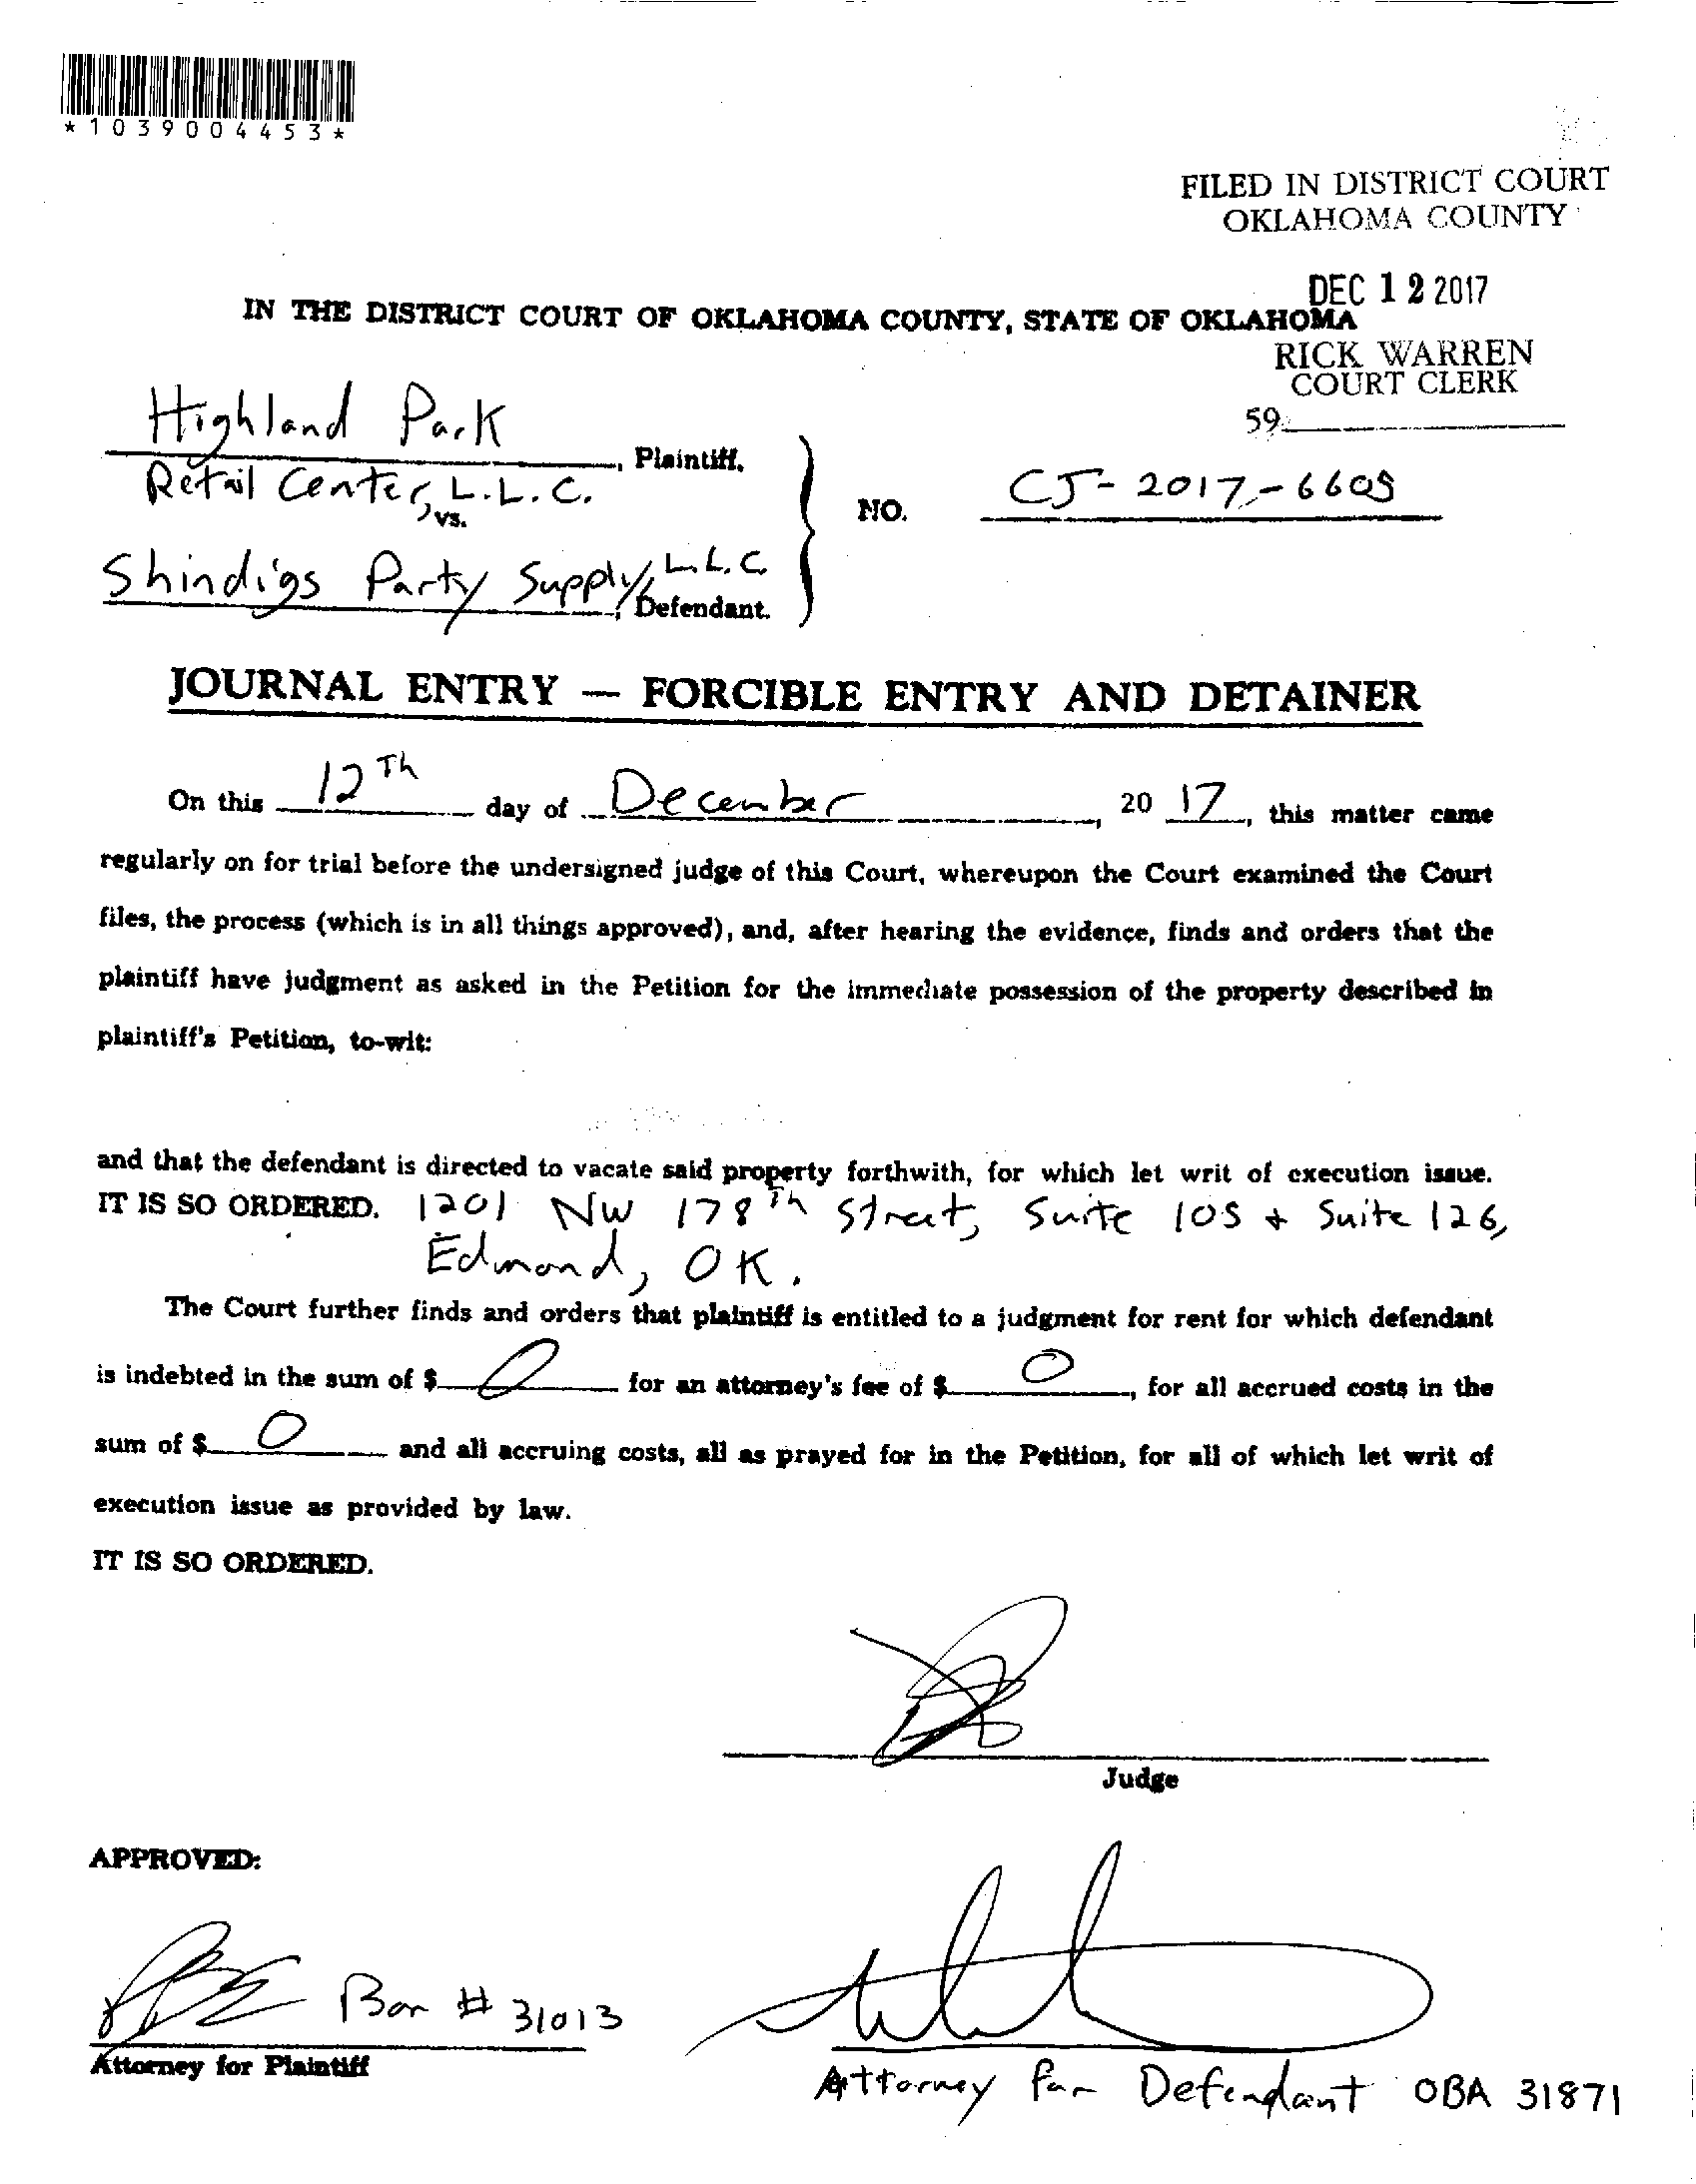 *1039004453*
FILED IN DISTRICT COURT
OKLAHOMA COUNTY
DEC 12 2017
IN THE DISTRICT COURT OF OKLAHOMA COUNTY, STATE OF OKLAHOMA
RICK WARREN
COURT CLERK
59
Highland Park
, Plaintiff,
Retail Center, L.L.C.
vs.
NO. CJ-2017-6605
Shindigs Party Supply, L.L.C.
, Defendant.
JOURNAL ENTRY — FORCIBLE ENTRY AND DETAINER
On this 12Th day of December, 20 17, this matter came
regularly on for trial before the undersigned judge of this Court, whereupon the Court examined the Court
files, the process (which is in all things approved), and, after hearing the evidence, finds and orders that the
plaintiff have judgment as asked in the Petition for the immediate possession of the property described in
plaintiff's Petition, to-wit:
and that the defendant is directed to vacate said property forthwith, for which let writ of execution issue.
IT IS SO ORDERED. 1201 NW 178Th Street, Suite 105 + Suite 126,
Edmond, OK.
The Court further finds and orders that plaintiff is entitled to a judgment for rent for which defendant
is indebted in the sum of $ 0 for an attorney's fee of $ 0, for all accrued costs in the
sum of $ 0 and all accruing costs, all as prayed for in the Petition, for all of which let writ of
execution issue as provided by law.
IT IS SO ORDERED.
Judge
APPROVED:
Bar # 31013
Attorney for Plaintiff
Attorney for Defendant OBA 31871